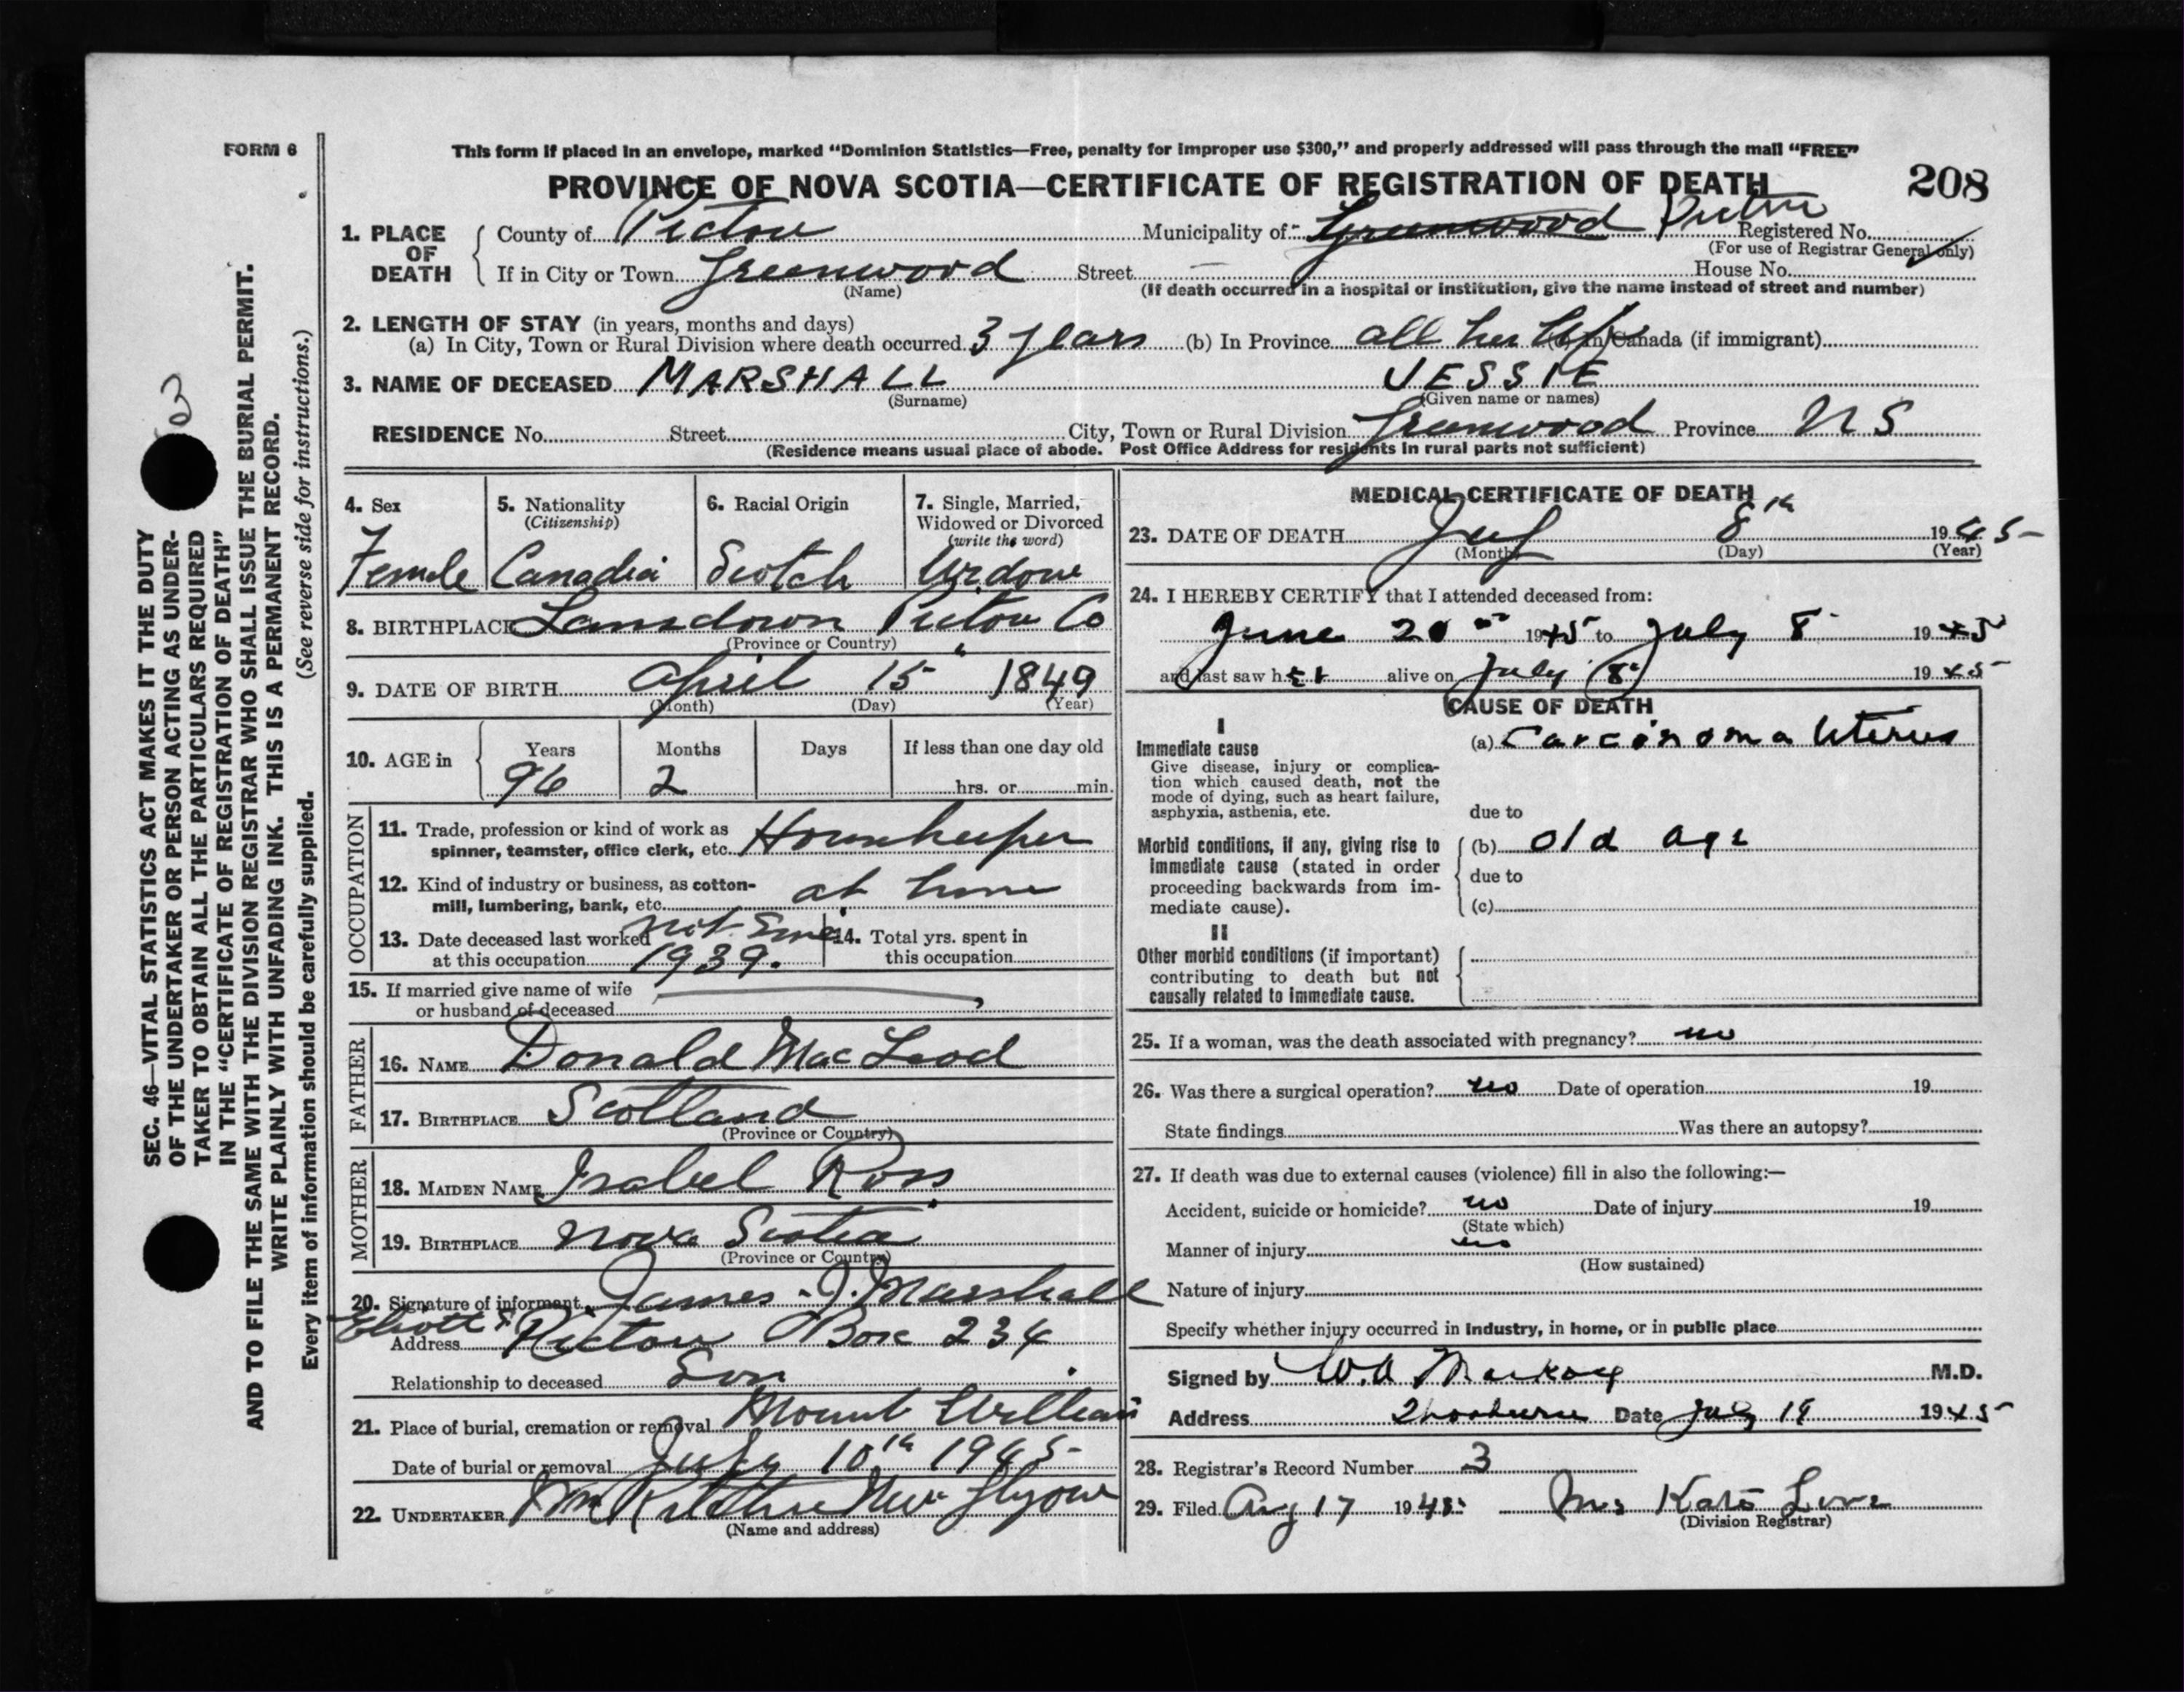 FORM 6
This form if placed in an envelope, marked "Dominion Statistics—Free, penalty for improper use $300," and properly addressed will pass through the mail "FREE"
PROVINCE OF NOVA SCOTIA—CERTIFICATE OF REGISTRATION OF DEATH 208
1. PLACE OF DEATH
County of Pictou Municipality of Greenwood Pictou Registered No.
(For use of Registrar General only)
If in City or Town Greenwood Street House No.
(Name) (If death occurred in a hospital or institution, give the name instead of street and number)
2. LENGTH OF STAY (in years, months and days)
(a) In City, Town or Rural Division where death occurred 3 years (b) In Province all her life (c) In Canada (if immigrant)
3. NAME OF DECEASED MARSHALL JESSIE
(Surname) (Given name or names)
RESIDENCE No. Street City, Town or Rural Division Greenwood Province N S
(Residence means usual place of abode. Post Office Address for residents in rural parts not sufficient)
4. Sex
Female
5. Nationality
(Citizenship)
Canadia
6. Racial Origin
Scotch
7. Single, Married,
Widowed or Divorced
(write the word)
Widow
8. BIRTHPLACE Lansdown Pictou Co
(Province or Country)
9. DATE OF BIRTH April 15 1849
(Month) (Day) (Year)
10. AGE in
Years Months Days If less than one day old
96 2 hrs. or min.
OCCUPATION
11. Trade, profession or kind of work as
spinner, teamster, office clerk, etc. Housekeeper
12. Kind of industry or business, as cotton-
mill, lumbering, bank, etc. at home
13. Date deceased last worked not since
at this occupation 1939.
14. Total yrs. spent in
this occupation
15. If married give name of wife
or husband of deceased
FATHER
16. NAME Donald MacLeod
17. BIRTHPLACE Scotland
(Province or Country)
MOTHER
18. MAIDEN NAME Isabel Ross
19. BIRTHPLACE Nova Scotia
(Province or Country)
20. Signature of informant James J. Marshall
Address Pictou Box 234
Relationship to deceased Son
21. Place of burial, cremation or removal Mount William
Date of burial or removal July 10th 1945
22. UNDERTAKER New Glasgow
(Name and address)
MEDICAL CERTIFICATE OF DEATH
23. DATE OF DEATH July 8th 1945
(Month) (Day) (Year)
24. I HEREBY CERTIFY that I attended deceased from:
June 20 1945 to July 8 1945
and last saw her alive on July 8 1945
CAUSE OF DEATH
I
Immediate cause
Give disease, injury or complica-
tion which caused death, not the
mode of dying, such as heart failure,
asphyxia, asthenia, etc.
(a) Carcinoma Uterus
due to
Morbid conditions, if any, giving rise to
immediate cause (stated in order
proceeding backwards from im-
mediate cause).
(b) old age
due to
(c)
II
Other morbid conditions (if important)
contributing to death but not
causally related to immediate cause.
25. If a woman, was the death associated with pregnancy? no
26. Was there a surgical operation? no Date of operation 19
State findings Was there an autopsy?
27. If death was due to external causes (violence) fill in also the following:—
Accident, suicide or homicide? no Date of injury 19
(State which)
Manner of injury no
(How sustained)
Nature of injury
Specify whether injury occurred in industry, in home, or in public place
Signed by W.A MacKay M.D.
Address Date July 18 1945
28. Registrar's Record Number 3
29. Filed Aug 17 1945 Mrs Kate Love
(Division Registrar)
SEC. 46—VITAL STATISTICS ACT MAKES IT THE DUTY
OF THE UNDERTAKER OR PERSON ACTING AS UNDER-
TAKER TO OBTAIN ALL THE PARTICULARS REQUIRED
IN THE "CERTIFICATE OF REGISTRATION OF DEATH"
AND TO FILE THE SAME WITH THE DIVISION REGISTRAR WHO SHALL ISSUE THE BURIAL PERMIT.
WRITE PLAINLY WITH UNFADING INK. THIS IS A PERMANENT RECORD.
Every item of information should be carefully supplied. (See reverse side for instructions.)